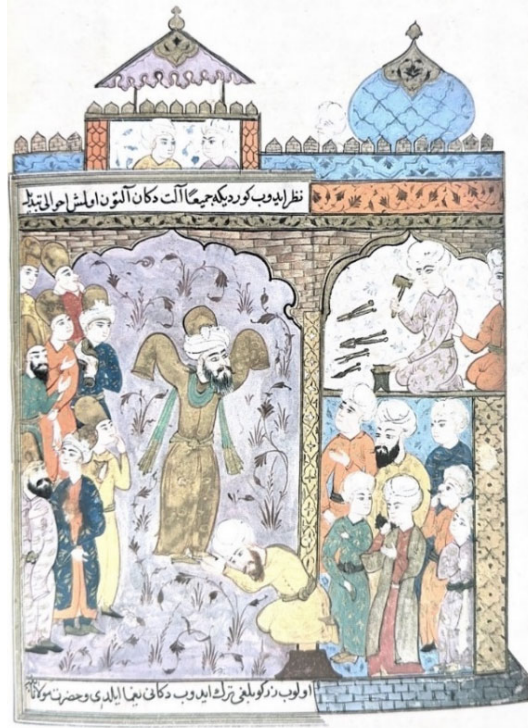 نظر ایدوب كوردیكه جمیعا آلت دكان آلتون اولمش احوالی تبدیل
اولوب زركوبلغی ترك ایدوب دكانی یغما ایلدی وحضرت مولانا